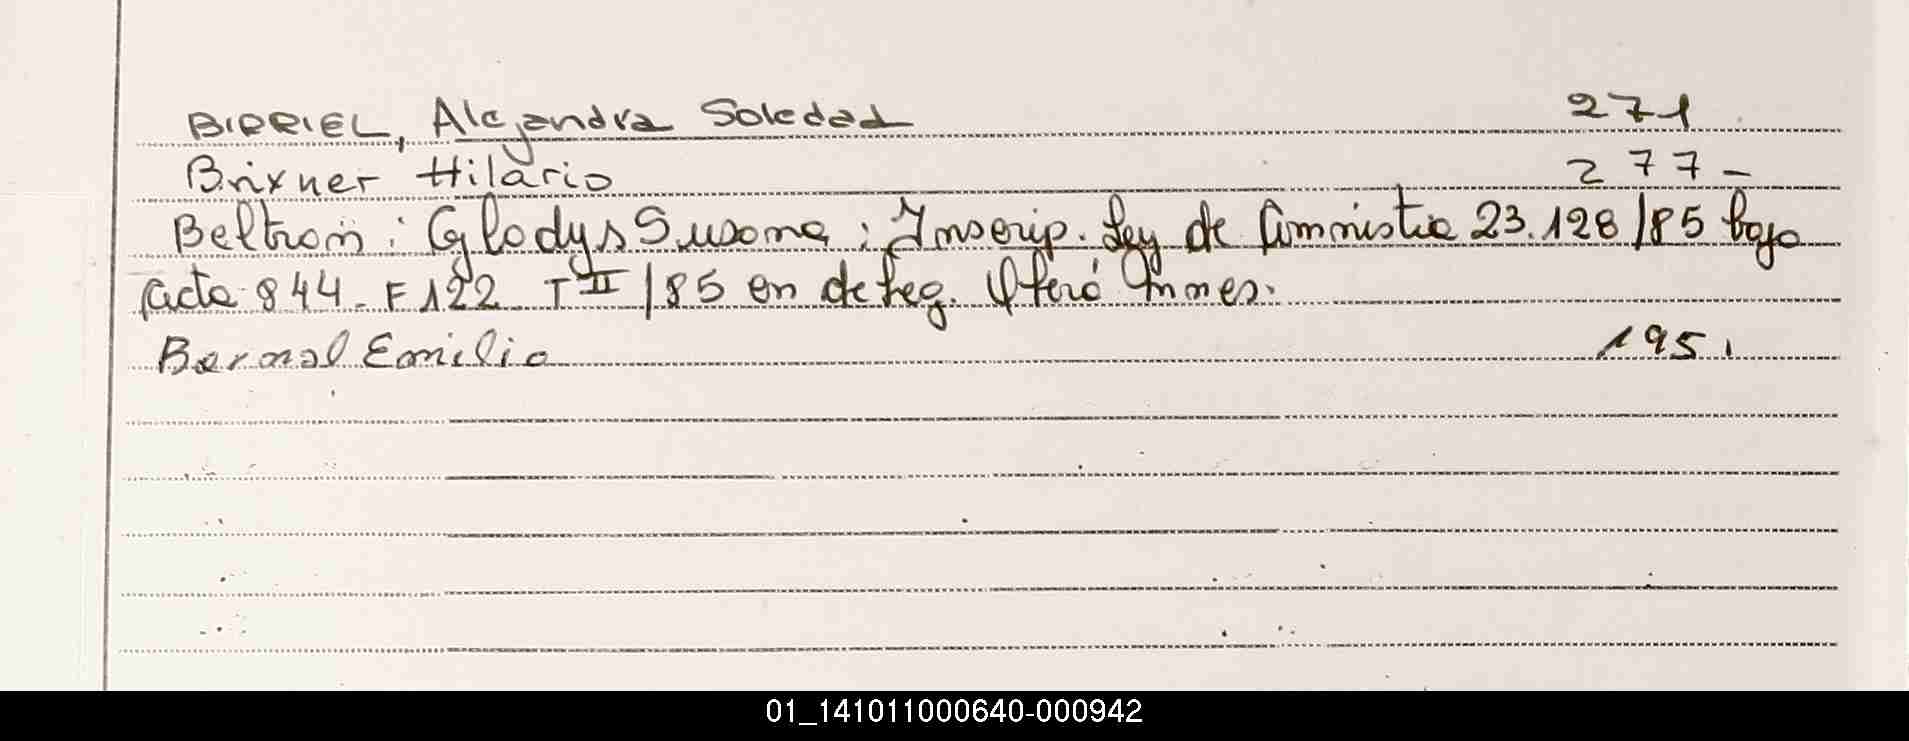 BIRRIEL, Alejandra Soledad 271
Brixner Hilario 277-
Beltran: Gladys Susana: Inscrip. Ley de Amnistia 23.128/85 bajo
acta 844- F 122 T II /85 en deleg.
Bernal Emilio 195.
01_141011000640-000942